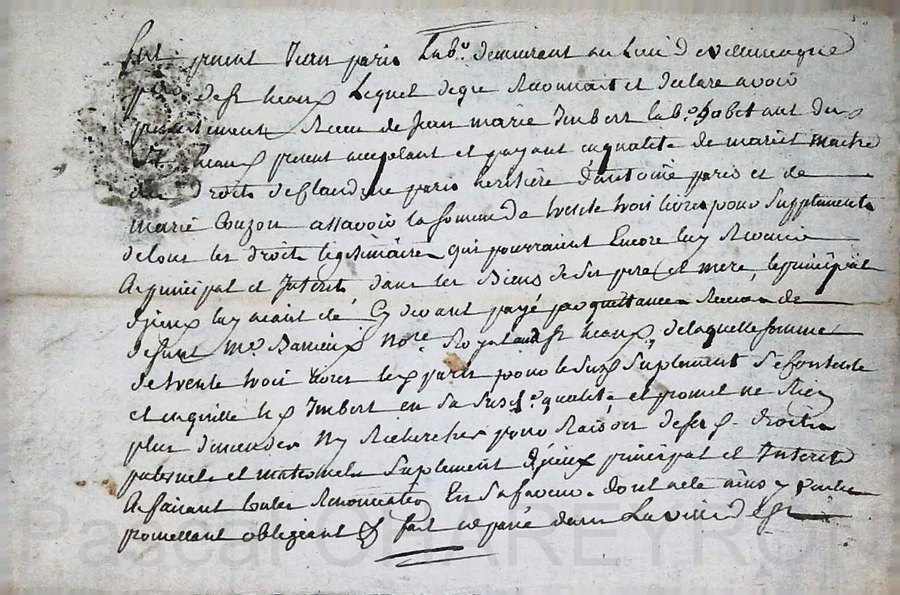 fut présent Jean paris Lab.r demeurant au Lieu de villemagne
par.se de st heaux Lequel de gré Reconnait et declare avoir
presentement Receu de Jean marie Imbert lab.r habitant dud
St heaux present acceptant et payant en qualité de mariet maitre
des Droits de Claudine paris heritiere d'antoine paris et de
marie Couzon assavoir la somme de trente trois livres pour supplement
de tous les droits legitimaires qui pourraient Encore luy Revenir
En principal et Interets dans les Biens de ses pere et mere, le principal
d'jceux luy aiant été Cy devant payé par quittance Receue de
defunt M.e Barrieux no.re Royal aud st heaux, de laquelle somme
de trente trois livres led paris pour le susd suplement se Contente
et en quitte led Imbert en sa susd.e qualité et promet ne Rien
plus demander Ny Rechercher pour Raison de sesd. droits
paternels et maternels suplement d'jceux principal et Interets
En faisant toutes Renonciations En sa faveur. dont acte ainsy voulu
promettant obligeant &c fait et passé dans La ville de st
Pascal CHAREYRON